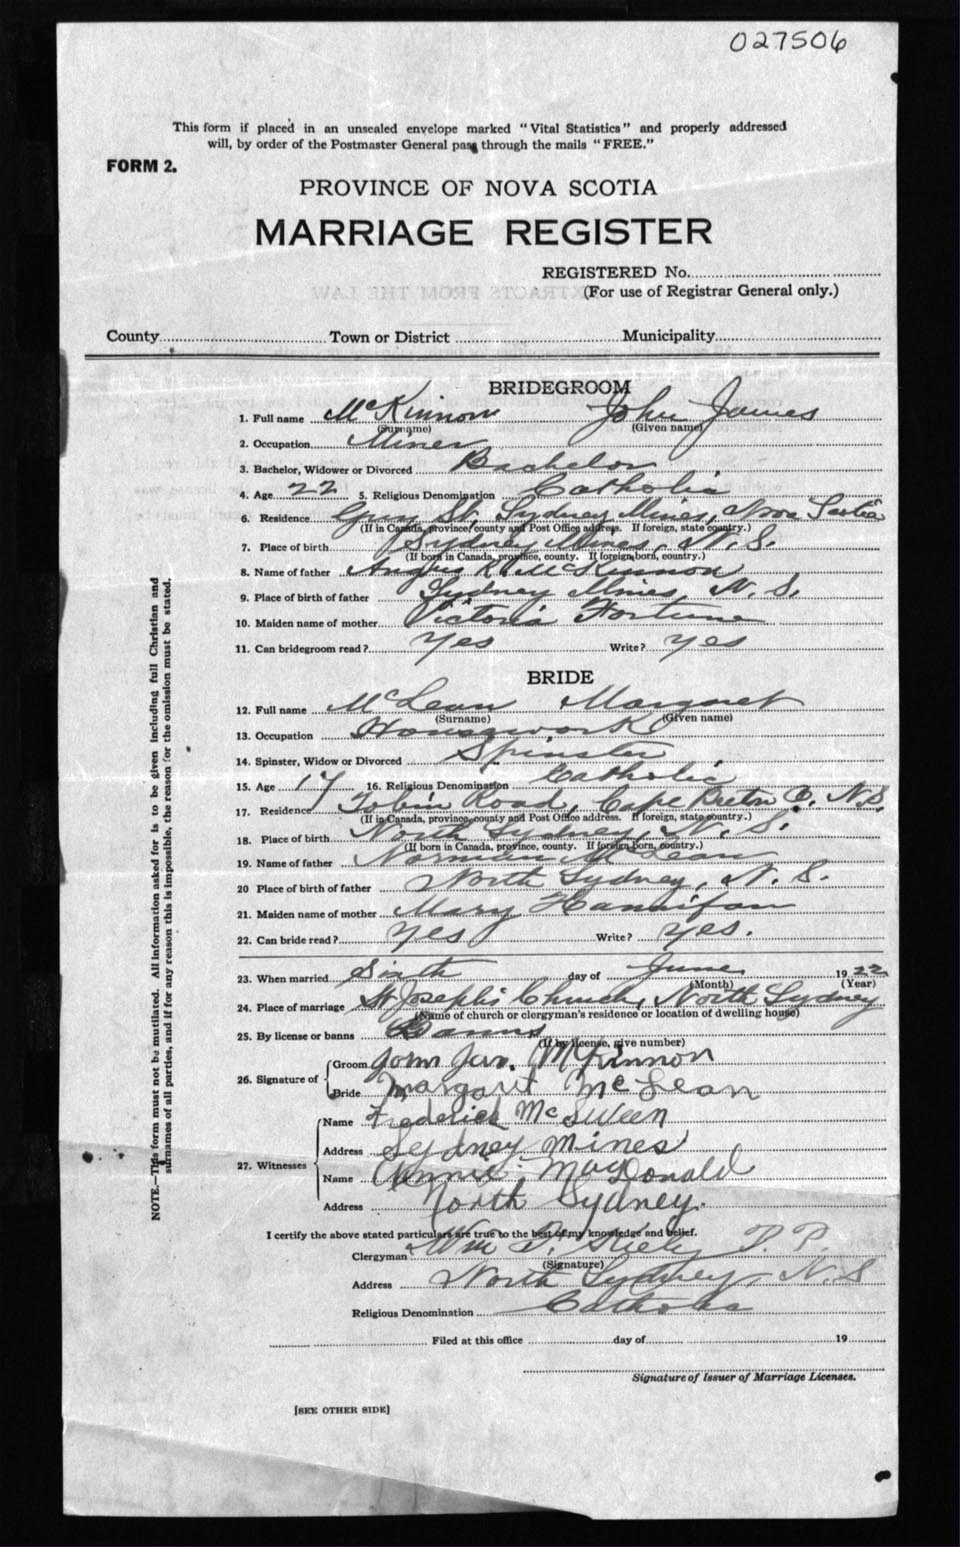 027506
This form if placed in an unsealed envelope marked "Vital Statistics" and properly addressed
will, by order of the Postmaster General pass through the mails "FREE."
FORM 2.
PROVINCE OF NOVA SCOTIA
MARRIAGE REGISTER
REGISTERED No.
(For use of Registrar General only.)
County Town or District Municipality
BRIDEGROOM
1. Full name McKinnon John James
(Surname) (Given name)
2. Occupation Miner
3. Bachelor, Widower or Divorced Bachelor
4. Age 22 5. Religious Denomination Catholic
6. Residence St, Sydney Mines, Nova Scotia
(If in Canada, province, county and Post Office address. If foreign, state country.)
7. Place of birth Sydney Mines, N. S.
(If born in Canada, province, county. If foreign born, country.)
8. Name of father Angus R McKinnon
9. Place of birth of father Sydney Mines, N. S.
10. Maiden name of mother Victoria Fortune
11. Can bridegroom read? Yes Write? Yes
BRIDE
12. Full name McLean Margaret
(Surname) (Given name)
13. Occupation Housework
14. Spinster, Widow or Divorced Spinster
15. Age 17 16. Religious Denomination Catholic
17. Residence Tobin Road, Cape Breton C. N.S.
(If in Canada, province, county and Post Office address. If foreign, state country.)
18. Place of birth North Sydney, N. S.
(If born in Canada, province, county. If foreign born, country.)
19. Name of father Norman McLean
20 Place of birth of father North Sydney, N. S.
21. Maiden name of mother Mary Hannifan
22. Can bride read? Yes Write? Yes.
23. When married Sixth day of June 1922
(Month) (Year)
24. Place of marriage St Joseph's Church, North Sydney
(Name of church or clergyman's residence or location of dwelling house)
25. By license or banns Banns
(If by license, give number)
26. Signature of Groom John Jas. McKinnon
Bride Margaret McLean
27. Witnesses Name Frederick McSween
Address Sydney Mines
Name Annie MacDonald
Address North Sydney.
I certify the above stated particulars are true to the best of my knowledge and belief.
Clergyman Wm D. P. P.
(Signature)
Address North Sydney, N. S
Religious Denomination Catholic
Filed at this office day of 19
Signature of Issuer of Marriage Licenses.
[SEE OTHER SIDE]
NOTE.—This form must not be mutilated. All information asked for is to be given including full Christian and
surnames of all parties, and if for any reason this is impossible, the reason for the omission must be stated.